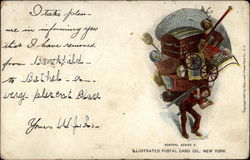 I take pleas-
ure in informing you
that I have removed
from Brookfield
to Bethel - a
very plesent place
Yours W.J.R.
ILLUSTRATED POSTAL CARD CO., NEW YORK